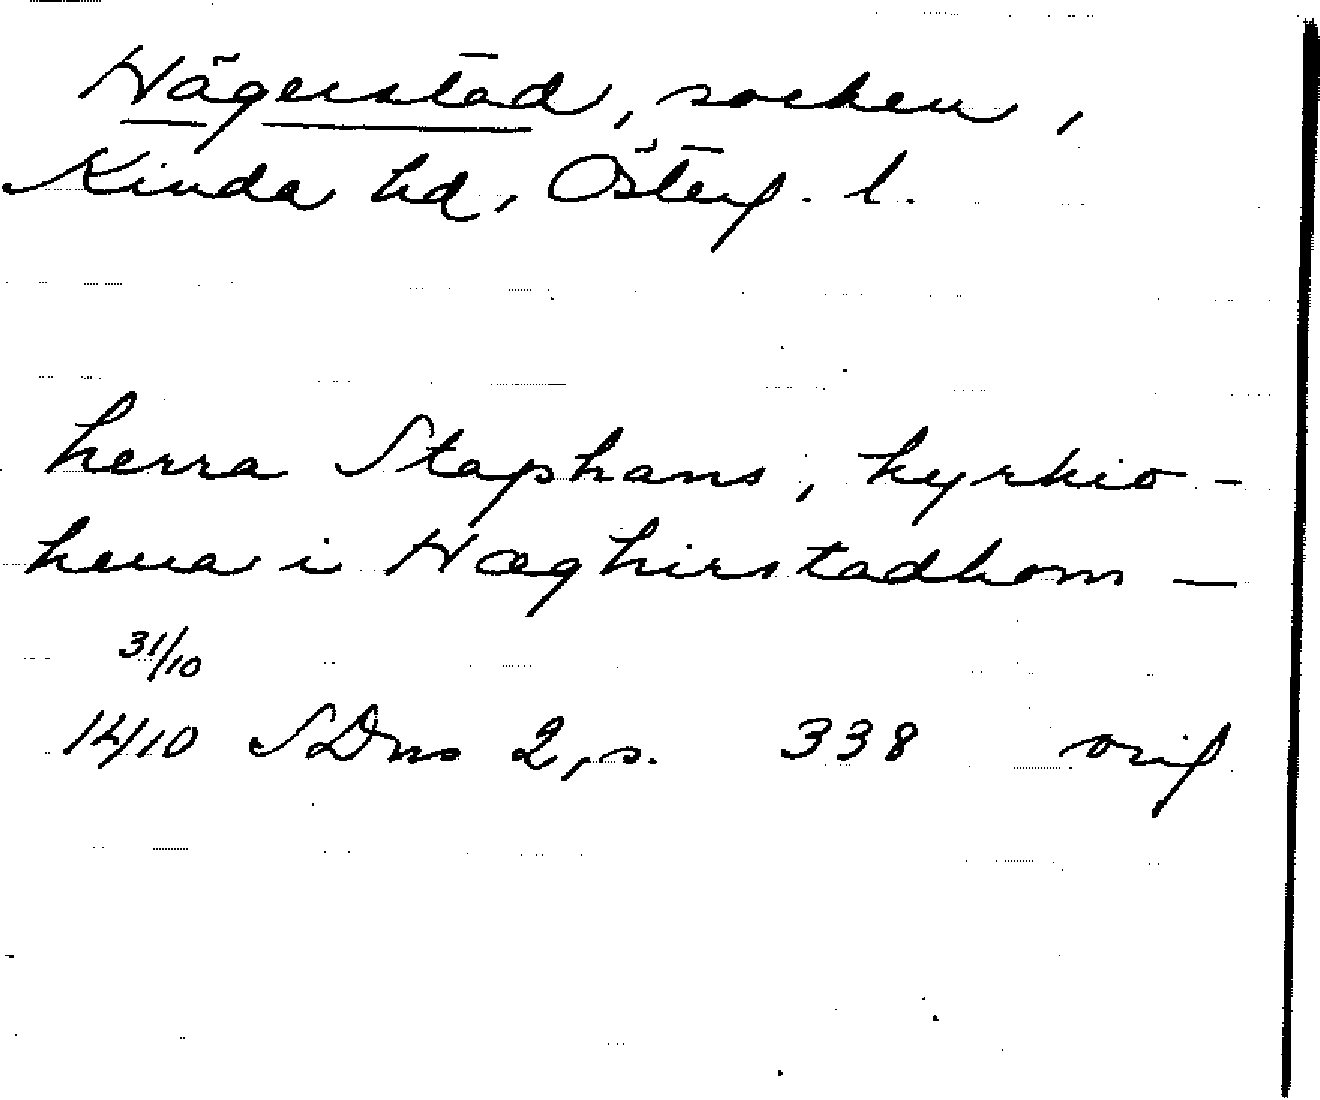 Hägerstad, socken,
Kinda hd, Österg. l.
herra Staphans, kyrkio-
herra i Hæghirstadhom —
31/10
1410 SDns 2, s. 338 orig